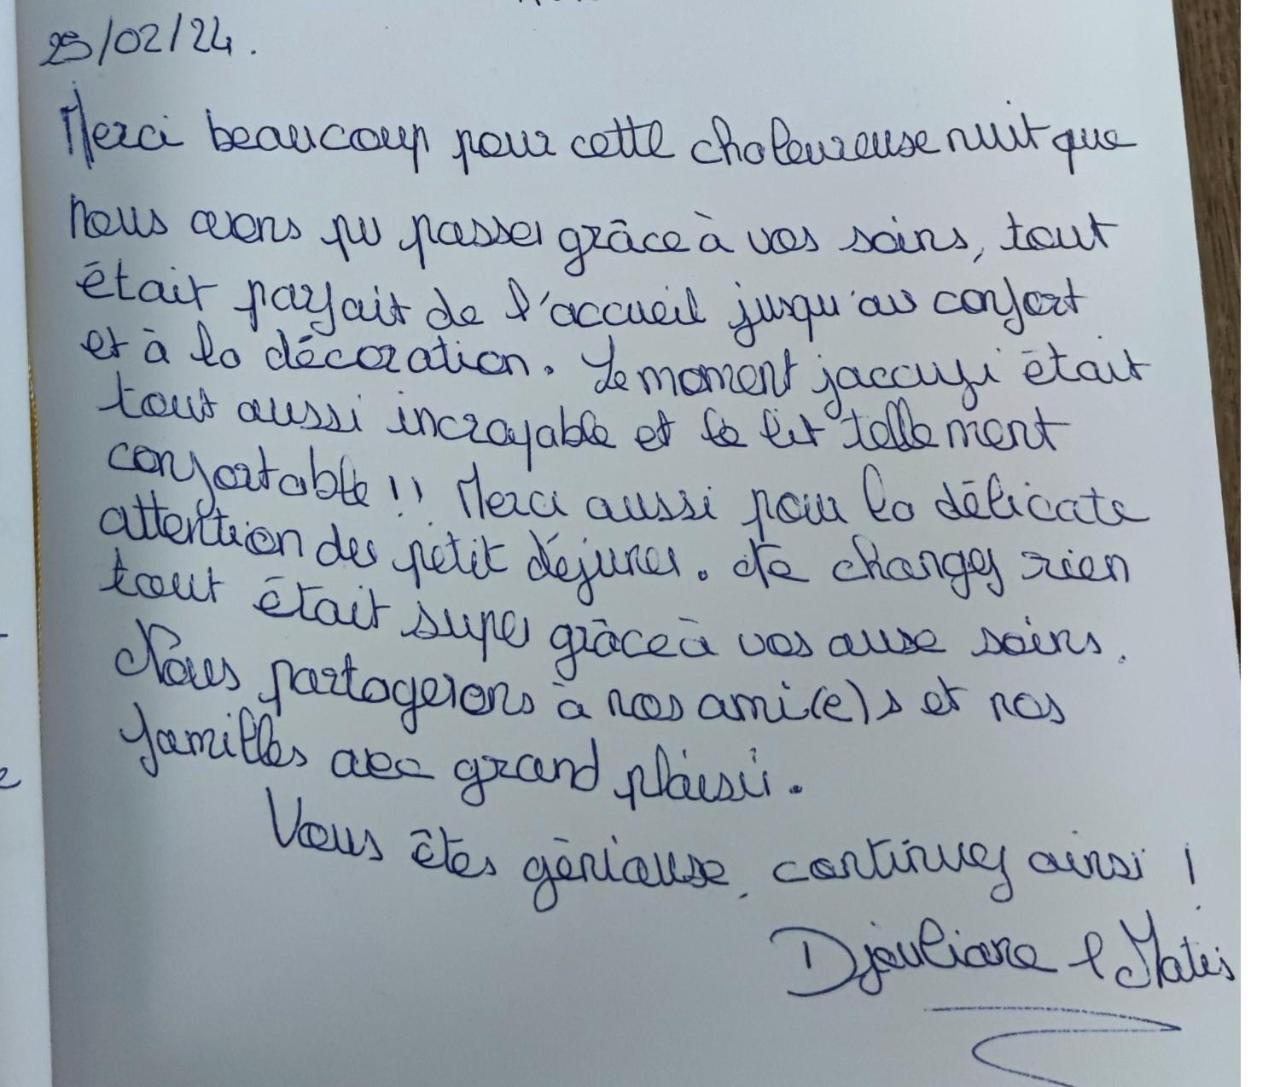 25/02/24.
Merci beaucoup pour cette chaleureuse nuit que
nous avons pu passer grâce à vos soins, tout
était parfait de l'accueil jusqu'au confort
et à la décoration. Le moment jaccuzi était
tout aussi incroyable et le lit tellement
confortable !! Merci aussi pour la délicate
attention des petit déjuner. Ne changez rien
tout était super grâce à vos ause soins.
Nous partagerons à nos ami(e)s et nos
familles avec grand plaisir.
Vous êtes génieuse, continuez ainsi !
Djouliane & Matis